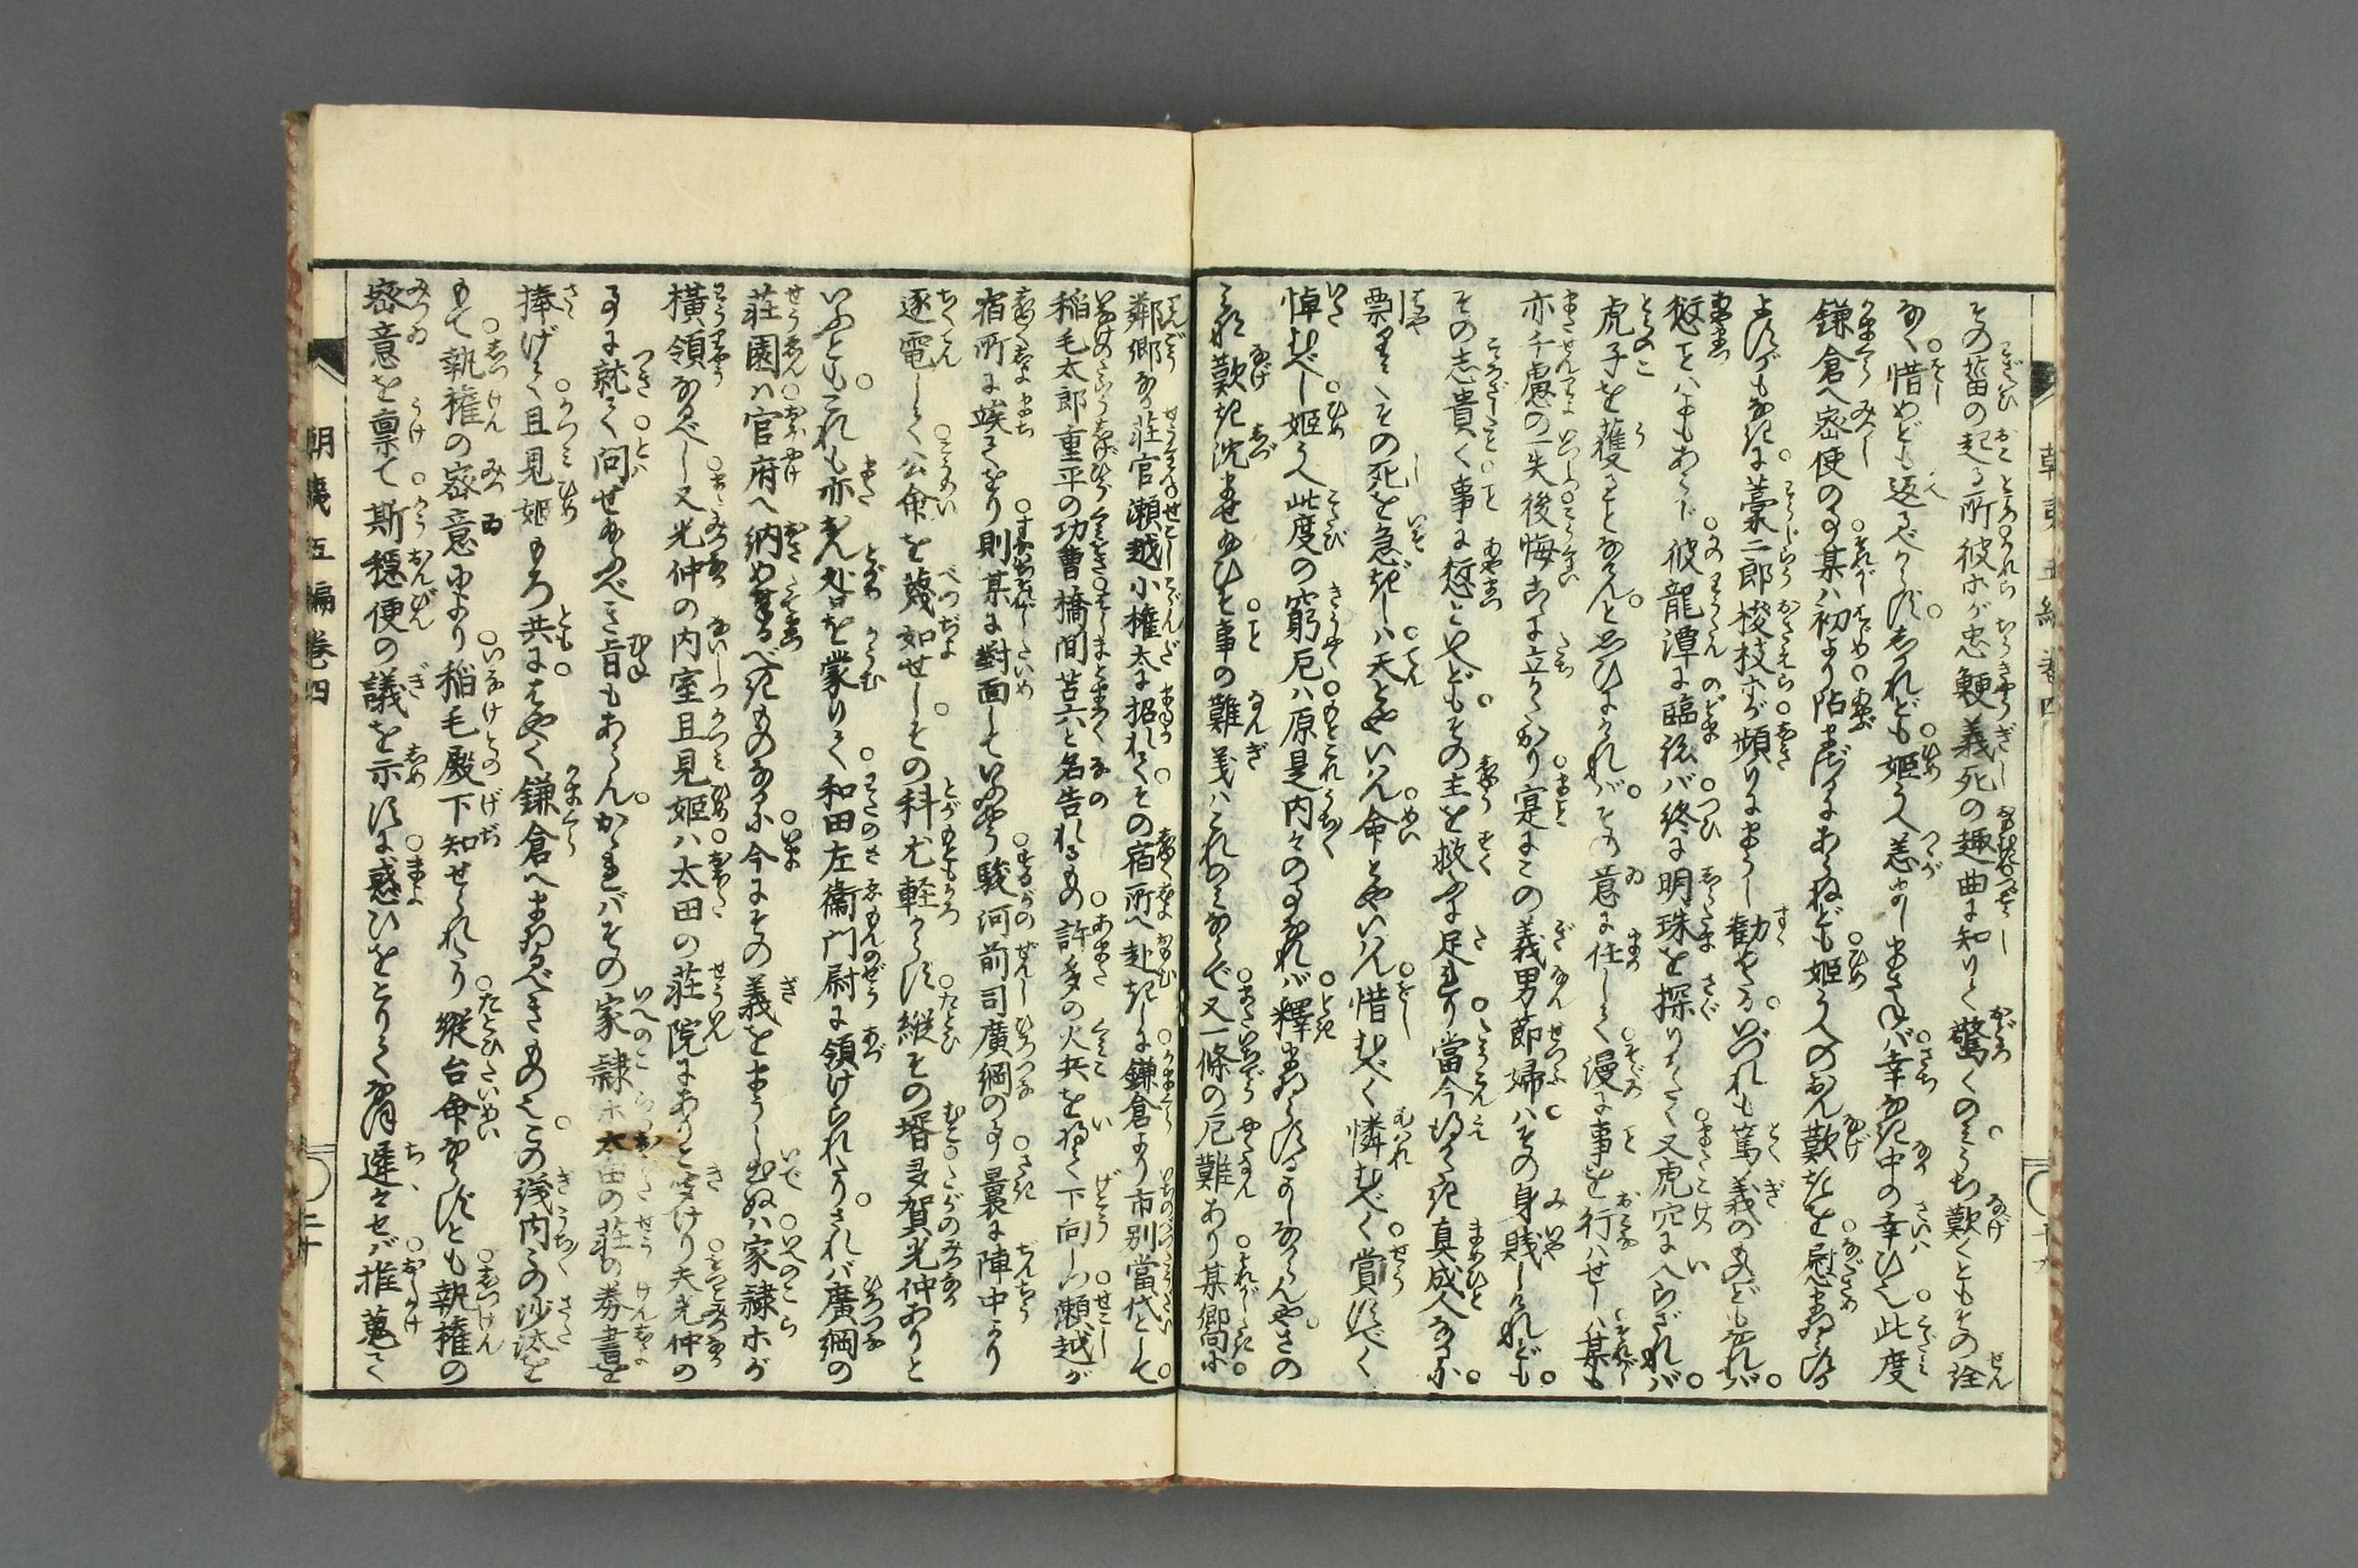 その菑の起る所彼ホが忠鯁義死の趣曲に知りて驚くのみうち歎くともその詮
なく惜めども返るべからずしかれども姫うへ恙なくまさねバ幸なき中の幸ひ也此度
鎌倉へ密使の事某ハ初より阻まざるにあらねども姫うへのおん歎きを慰まゐらする
よすがもなきに藁二郎梭枝ホが頻りにまうし勧めたるいづれも篤義のものどもなれバ
愆ことハよもあらじ彼龍潭に臨ずバ終に明珠を探りがたく又虎穴に入らざれバ
虎子を獲ることなけんと思ひにけれバその意に任して漫に事を行ハせしハ某も
亦千慮の一失後悔こゝに立がたかり寔にこの義男節婦ハその身賎しけれども
その志貴く事に愆といへどもその主を救ふに足れり當今得がたき真成人なるに
票くもその死を急ぎしハ天とやいはん命とやいはん惜むべく憐むべく賞すべく
悼むべし姫うへ此度の窮厄ハ原是内々の事なれバ釋まゐらするよしなからんやさの
み歎き沈ませ給ひそ事の難義ハこれのみならで又一條の厄難あり某郷に
鄰郷なる荘官瀬越小権太に招れてその宿所へ赴きしに鎌倉より市別當代として
稲毛太郎重平の功曹橋間苫六と名告れるもの許多の火兵を将て下向しつ瀬越が
宿所に竢てをり則某に對面していふやう駿河前司廣綱の事曩に陣中より
逐電して公命を蔑如せしその科尤軽からず縦その壻多賀光仲ありと
いふともこれも亦おん咎を蒙りて和田左衞門尉に領けられたりされバ廣綱の
荘園ハ官府へ納め奉るべきものなるに今にその義をまうし出ぬハ家隷ホが
横領なるべし又光仲の内室且見姫ハ太田の荘院にありと聞けり夫光仲の
事に就て問せ給ふべき旨もあらんかゝれバその家隷ホ太田の荘の券書を
捧げて且見姫もろ共にはやく鎌倉へまゐるべきもの也この義内々の沙汰を
もて執権の密意により稲毛殿下知せられたり縦台命ならずとも執権の
密意を稟て斯穏便の議を示すに惑ひをとりて猶遅々せバ推蒐て
朝夷五編巻四